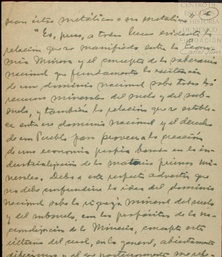 "Es, pues, a todas luces evidente la
relación que se manifiesta entre la Econo-
mía Minera y el concepto de la soberanía
nacional que fundamenta la existencia
de un dominio nacional sobre todos los
recursos minerales del suelo y del sub-
suelo, y también la relación que se estable-
ce entre ese dominio nacional y el derecho
de un Pueblo para procurar la creación
de una economía propia basada en la in-
dustrialización de sus materias primas mi-
nerales. Debo a este respecto advertir que
no debe confundirse la idea del dominio
nacional sobre la riqueza mineral del suelo
y del subsuelo, con los propósitos de la na-
cionalización de la Minería, concepto este
último del cual, en lo general,